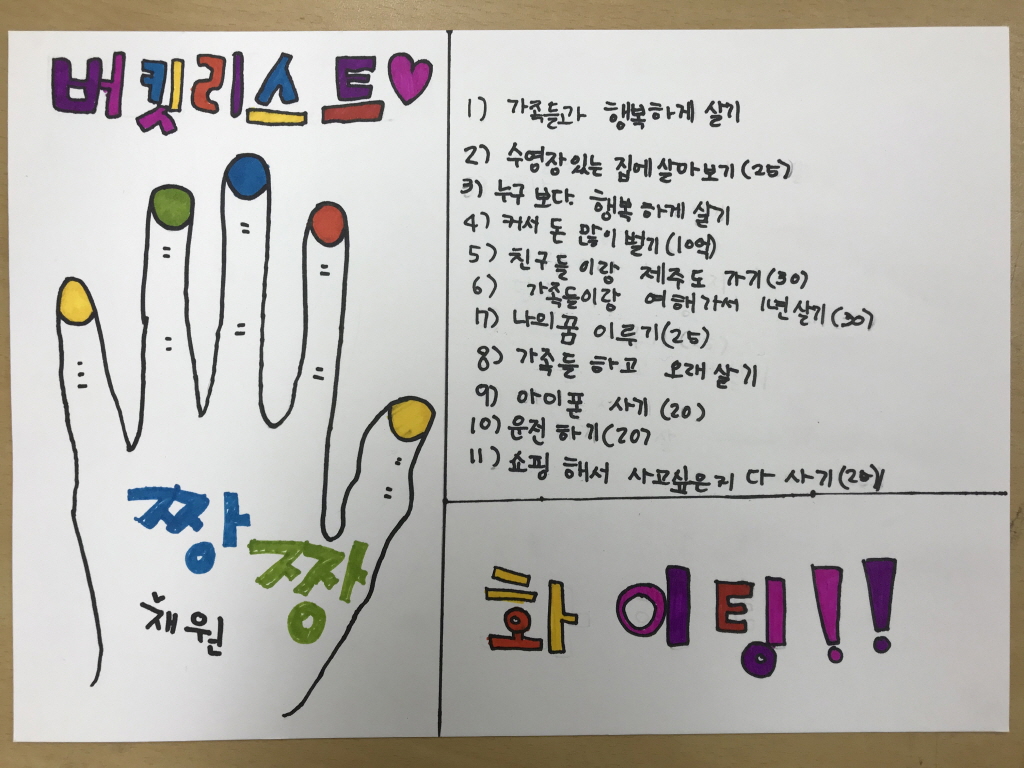 버킷리스트
짱
짱
채원
1) 가족들과 행복하게 살기
2) 수영장 있는 집에 살아보기(25)
3) 누구 보다 행복 하게 살기
4) 커서 돈 많이 벌기(10억)
5) 친구들 이랑 제주도 가기(30)
6) 가족들이랑 여해가서 1년 살기(30)
7) 나의 꿈 이루기(25)
8) 가족들 하고 오래 살기
9) 아이폰 사기 (20)
10) 운전 하기(20)
11) 쇼핑 해서 사고싶은지 다 사기(20)
화이팅!!